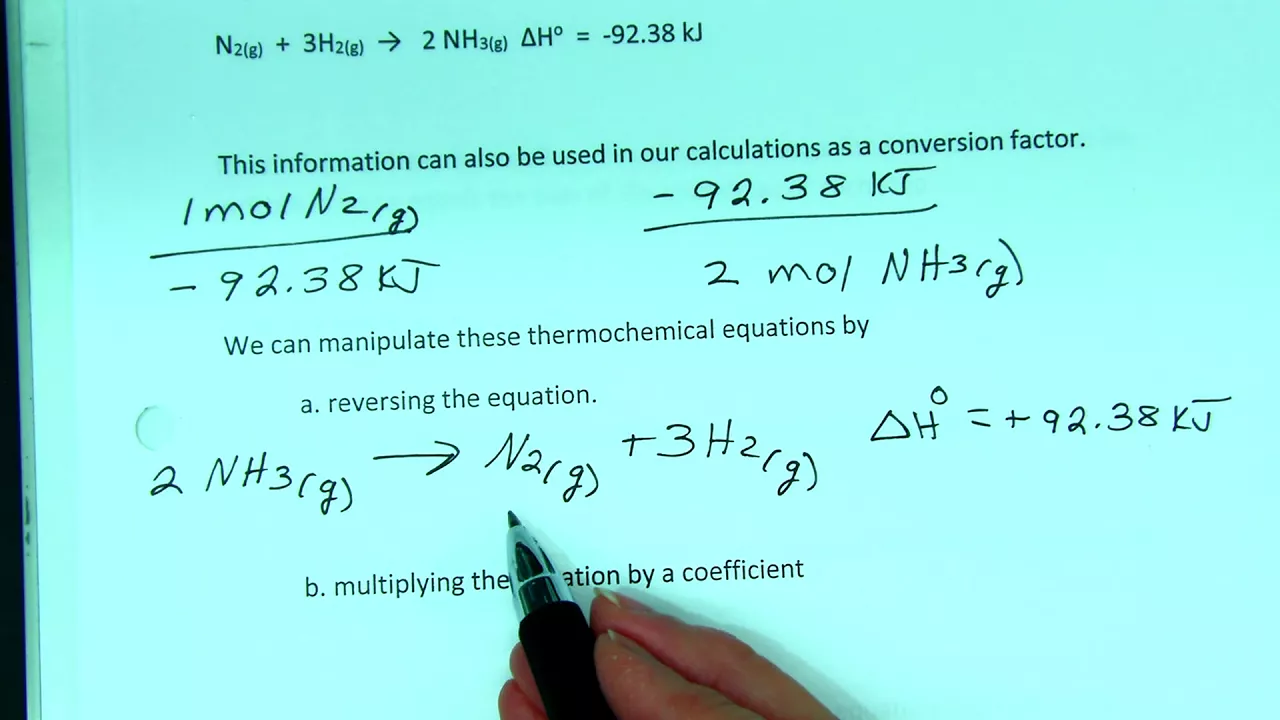 N2(g) + 3H2(g) → 2 NH3(g) ΔHº = -92.38 kJ
This information can also be used in our calculations as a conversion factor.
1 mol N2(g)
- 92.38 KJ
- 92.38 KJ
2 mol NH3(g)
We can manipulate these thermochemical equations by
a. reversing the equation.
2 NH3(g) → N2(g) + 3H2(g) ΔHº = + 92.38 KJ
b. multiplying the ation by a coefficient